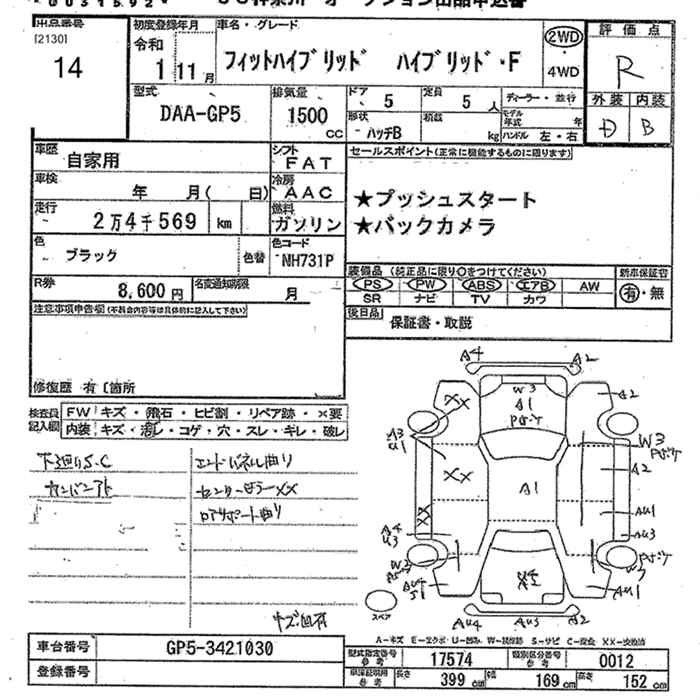 出品番号
[2130]
14
初度登録年月
令和
1 11月
車名・グレード
フィットハイブリッド ハイブリッド・F
2WD
・
4WD
評価点
R
外装 内装
D B
型式
DAA-GP5
排気量
1500
cc
ドア
5
定員
5 人
ディーラー・並行
形状
ハッチB
積載
kg
モデル年式 年
ハンドル 左・右
車歴
自家用
シフト
FAT
車検
年 月( 日)
冷房
AAC
走行
2万4千569 km
燃料
ガソリン
色
ブラック
色替
色コード
NH731P
R券
8,600円
名変通知期限
月
セールスポイント(正常に機能するものに限ります)
★プッシュスタート
★バックカメラ
装備品 (純正品に限り○をつけてください)
新車保証書
PS PW ABS エアB AW
有・無
SR ナビ TV カワ
後日品
保証書・取説
注意事項申告欄(不具合内容等は具体的に記入して下さい)
修復歴 有〔箇所
検査員記入欄
FW キズ・飛石・ヒビ割・リペア跡・×要
内装 キズ・汚レ・コゲ・穴・スレ・キレ・破レ
下廻りS.C
エンドパネル曲り
カンバンアト
センターピラーXX
A4
A2
W3
A1
XX
A2
A3
U1
W3
XX
A1
A2
AU1
A4
U3
AU3
W2
AU4
S1
AU1
スペア
AU4
AU3
A2
A-キズ E-エクボ U-凹み W-補修跡 S-サビ C-腐食 XX-交換済
車台番号
GP5-3421030
登録番号
型式指定番号
参考
17574
類別区分番号
参考
0012
車検証明用
参考
長さ
399 cm
幅
169 cm
高さ
152 cm